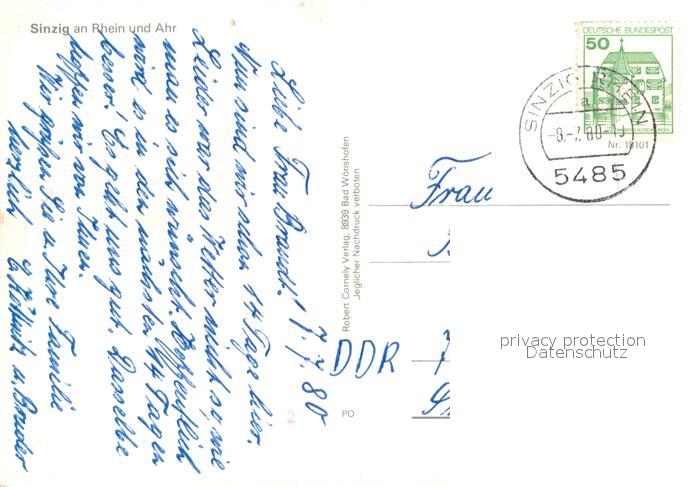 Sinzig an Rhein und Ahr
7.7.80
Liebe Frau Brandt!
Nun sind wir schon 14 Tage hier.
Leider war das Wetter nicht so, wie
man es sich wünscht. Hoffentlich
wird es in den nächsten 14 Tagen
besser! Es geht uns gut. Dasselbe
hoffen wir von Ihnen.
Wir grüßen Sie u. Ihre Familie
herzlich
u. Bruder
Robert Cornely Verlag, 8939 Bad Wörishofen
Jeglicher Nachdruck verboten
2
PO
DEUTSCHE BUNDESPOST
50
SINZIG, RHEIN
a
5485
Nr. 18101
Frau
DDR
privacy protection
Datenschutz